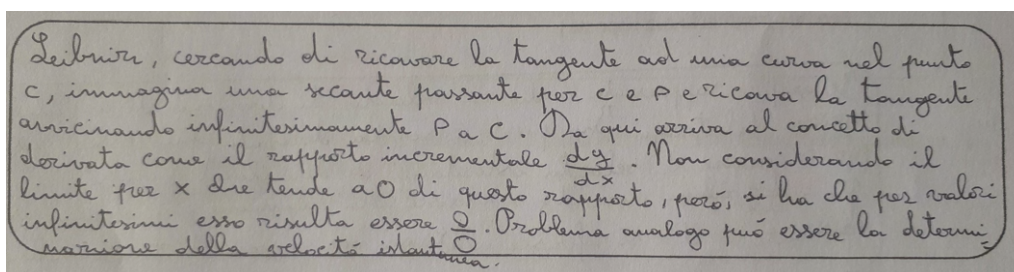 Leibniz, cercando di ricavare la tangente ad una curva nel punto
C, immagina una secante passante per C e P e ricava la tangente
avvicinando infinitesimamente P a C. Da qui arriva al concetto di
derivata come il rapporto incrementale dy/dx. Non considerando il
limite per x che tende a 0 di questo rapporto, però, si ha che per valori
infinitesimi esso risulta essere 0/0. Problema analogo può essere la determi=
nazione della velocità istantanea.